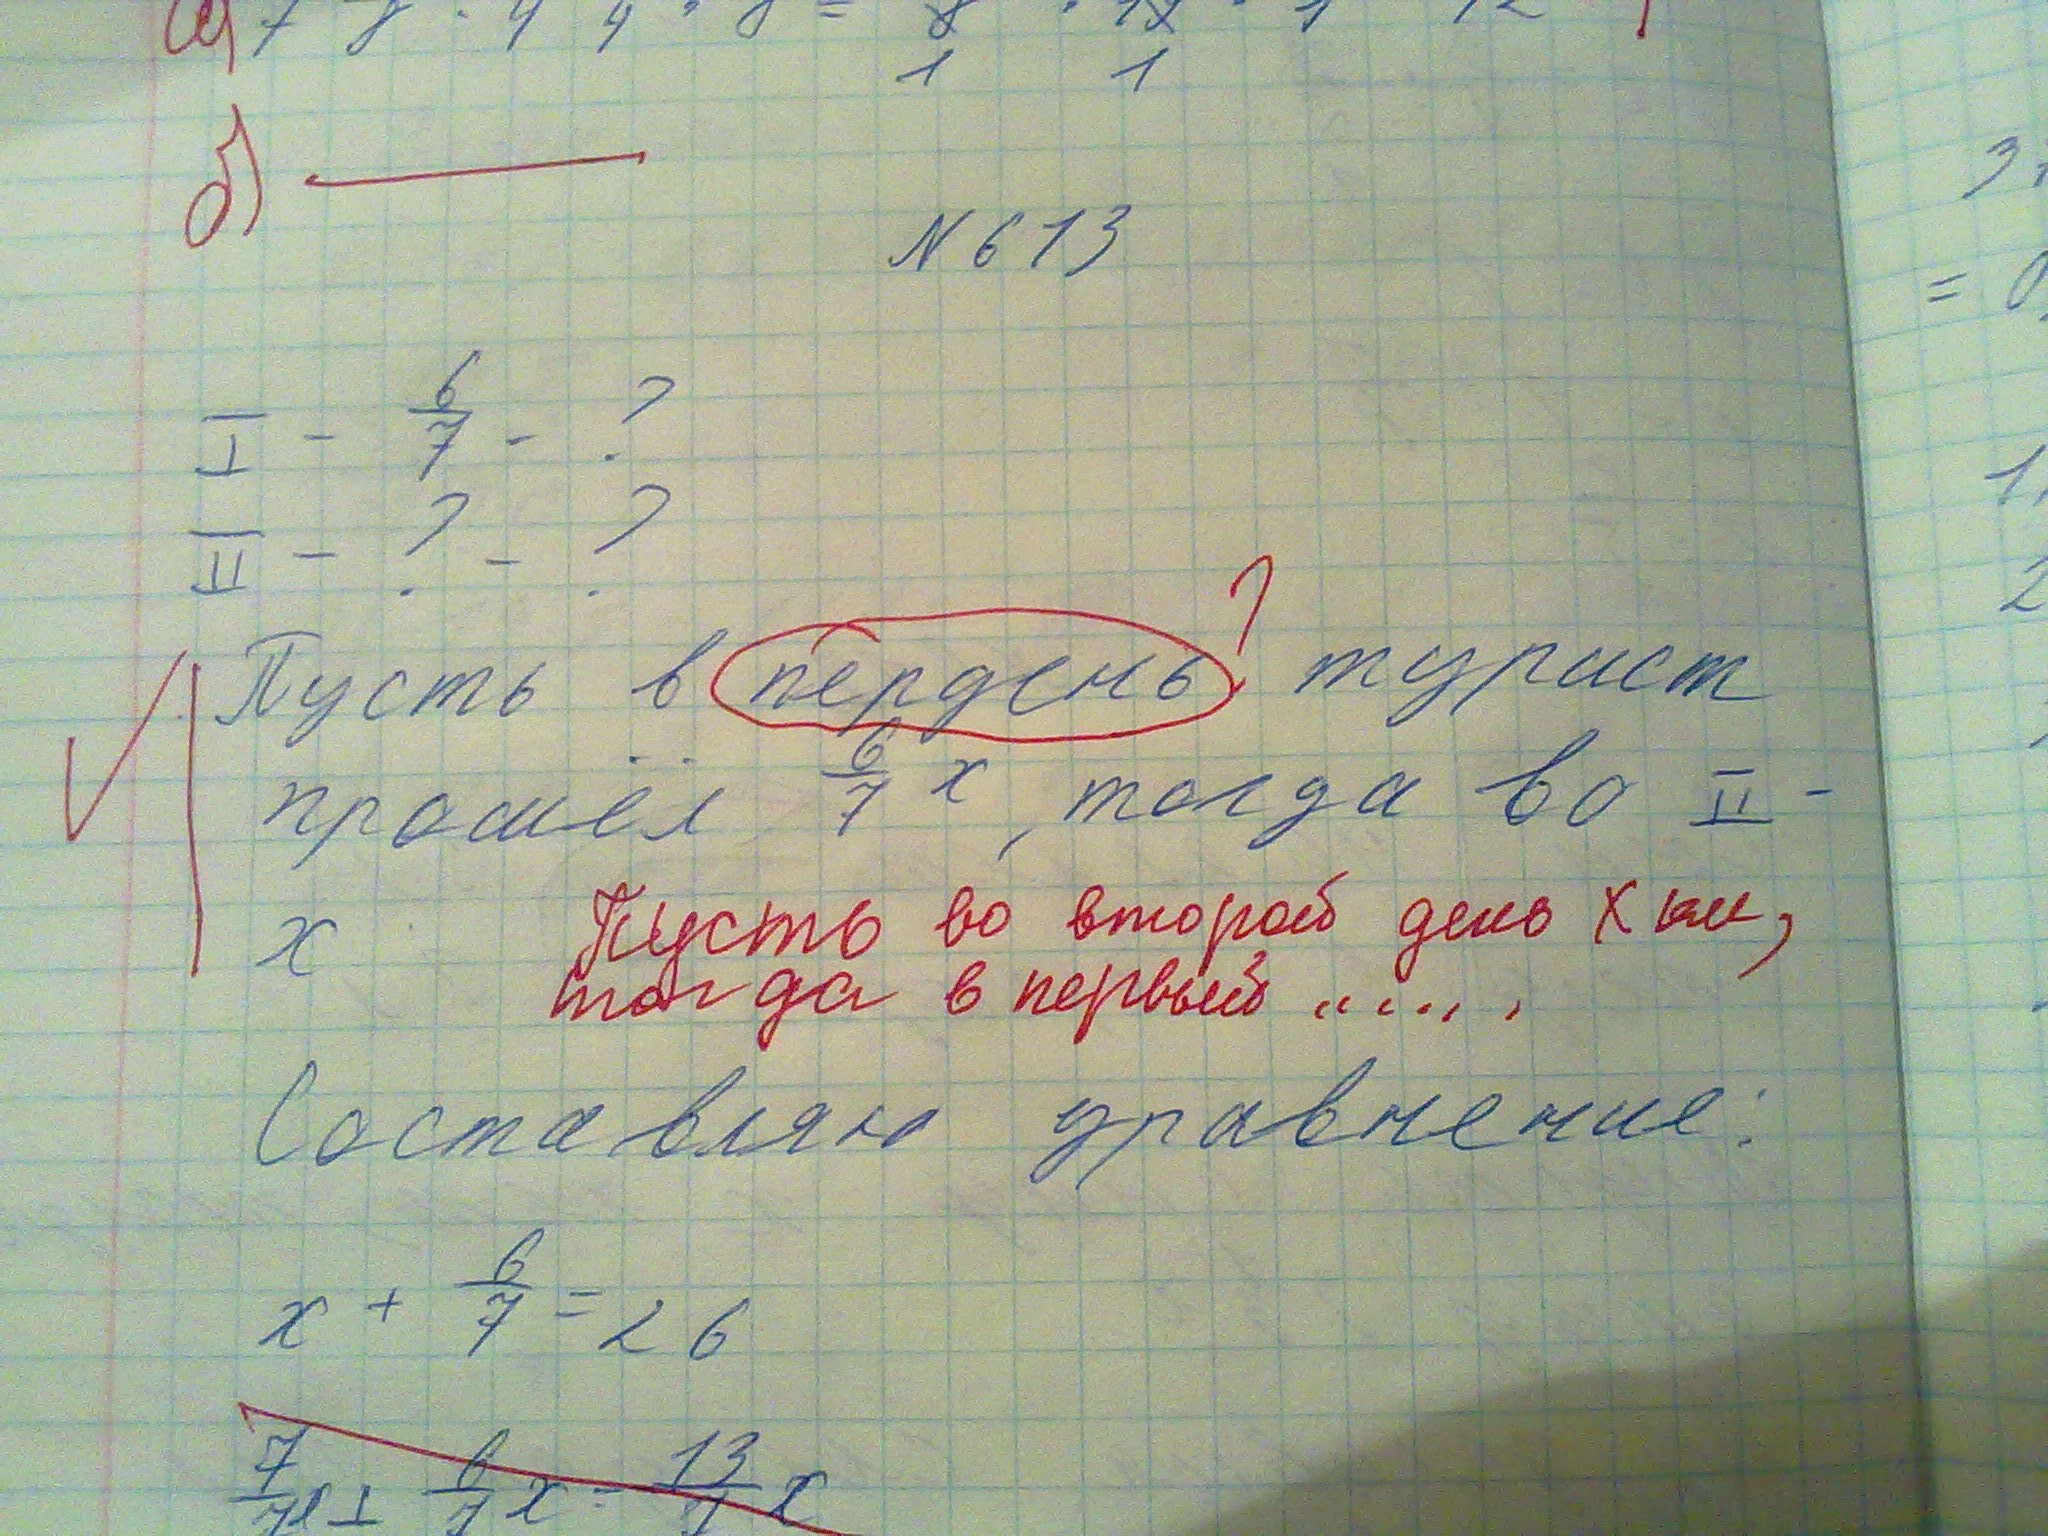 б)
N 613
I - 6/7 - ?
II - ? - ?
?
Пусть в пердень турист
прошёл 6/7 x, тогда во II -
x
Пусть во второй день x км,
тогда в первый .....
Составляю уравнение:
x + 6/7 = 26
13/7 x